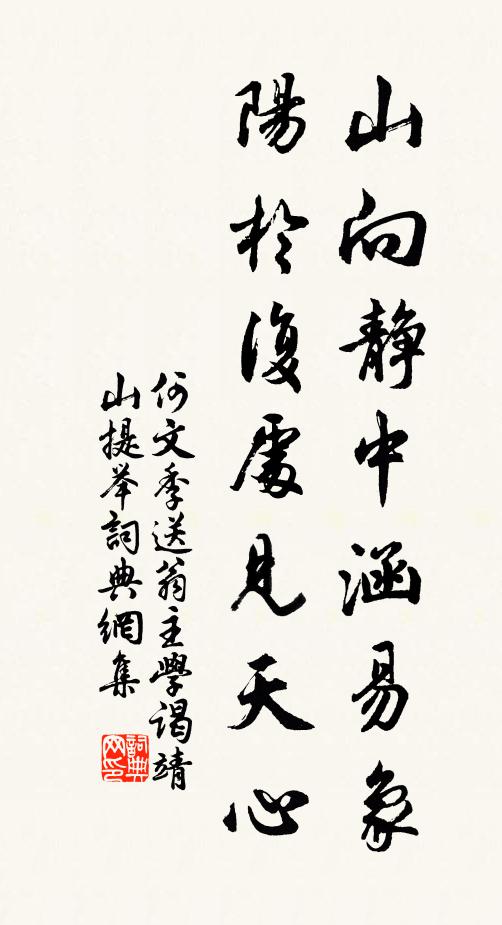 山向静中涵易象
陽於復處見天心
何文季送翁主學謁靖
山提举詞典網集
詞典網印